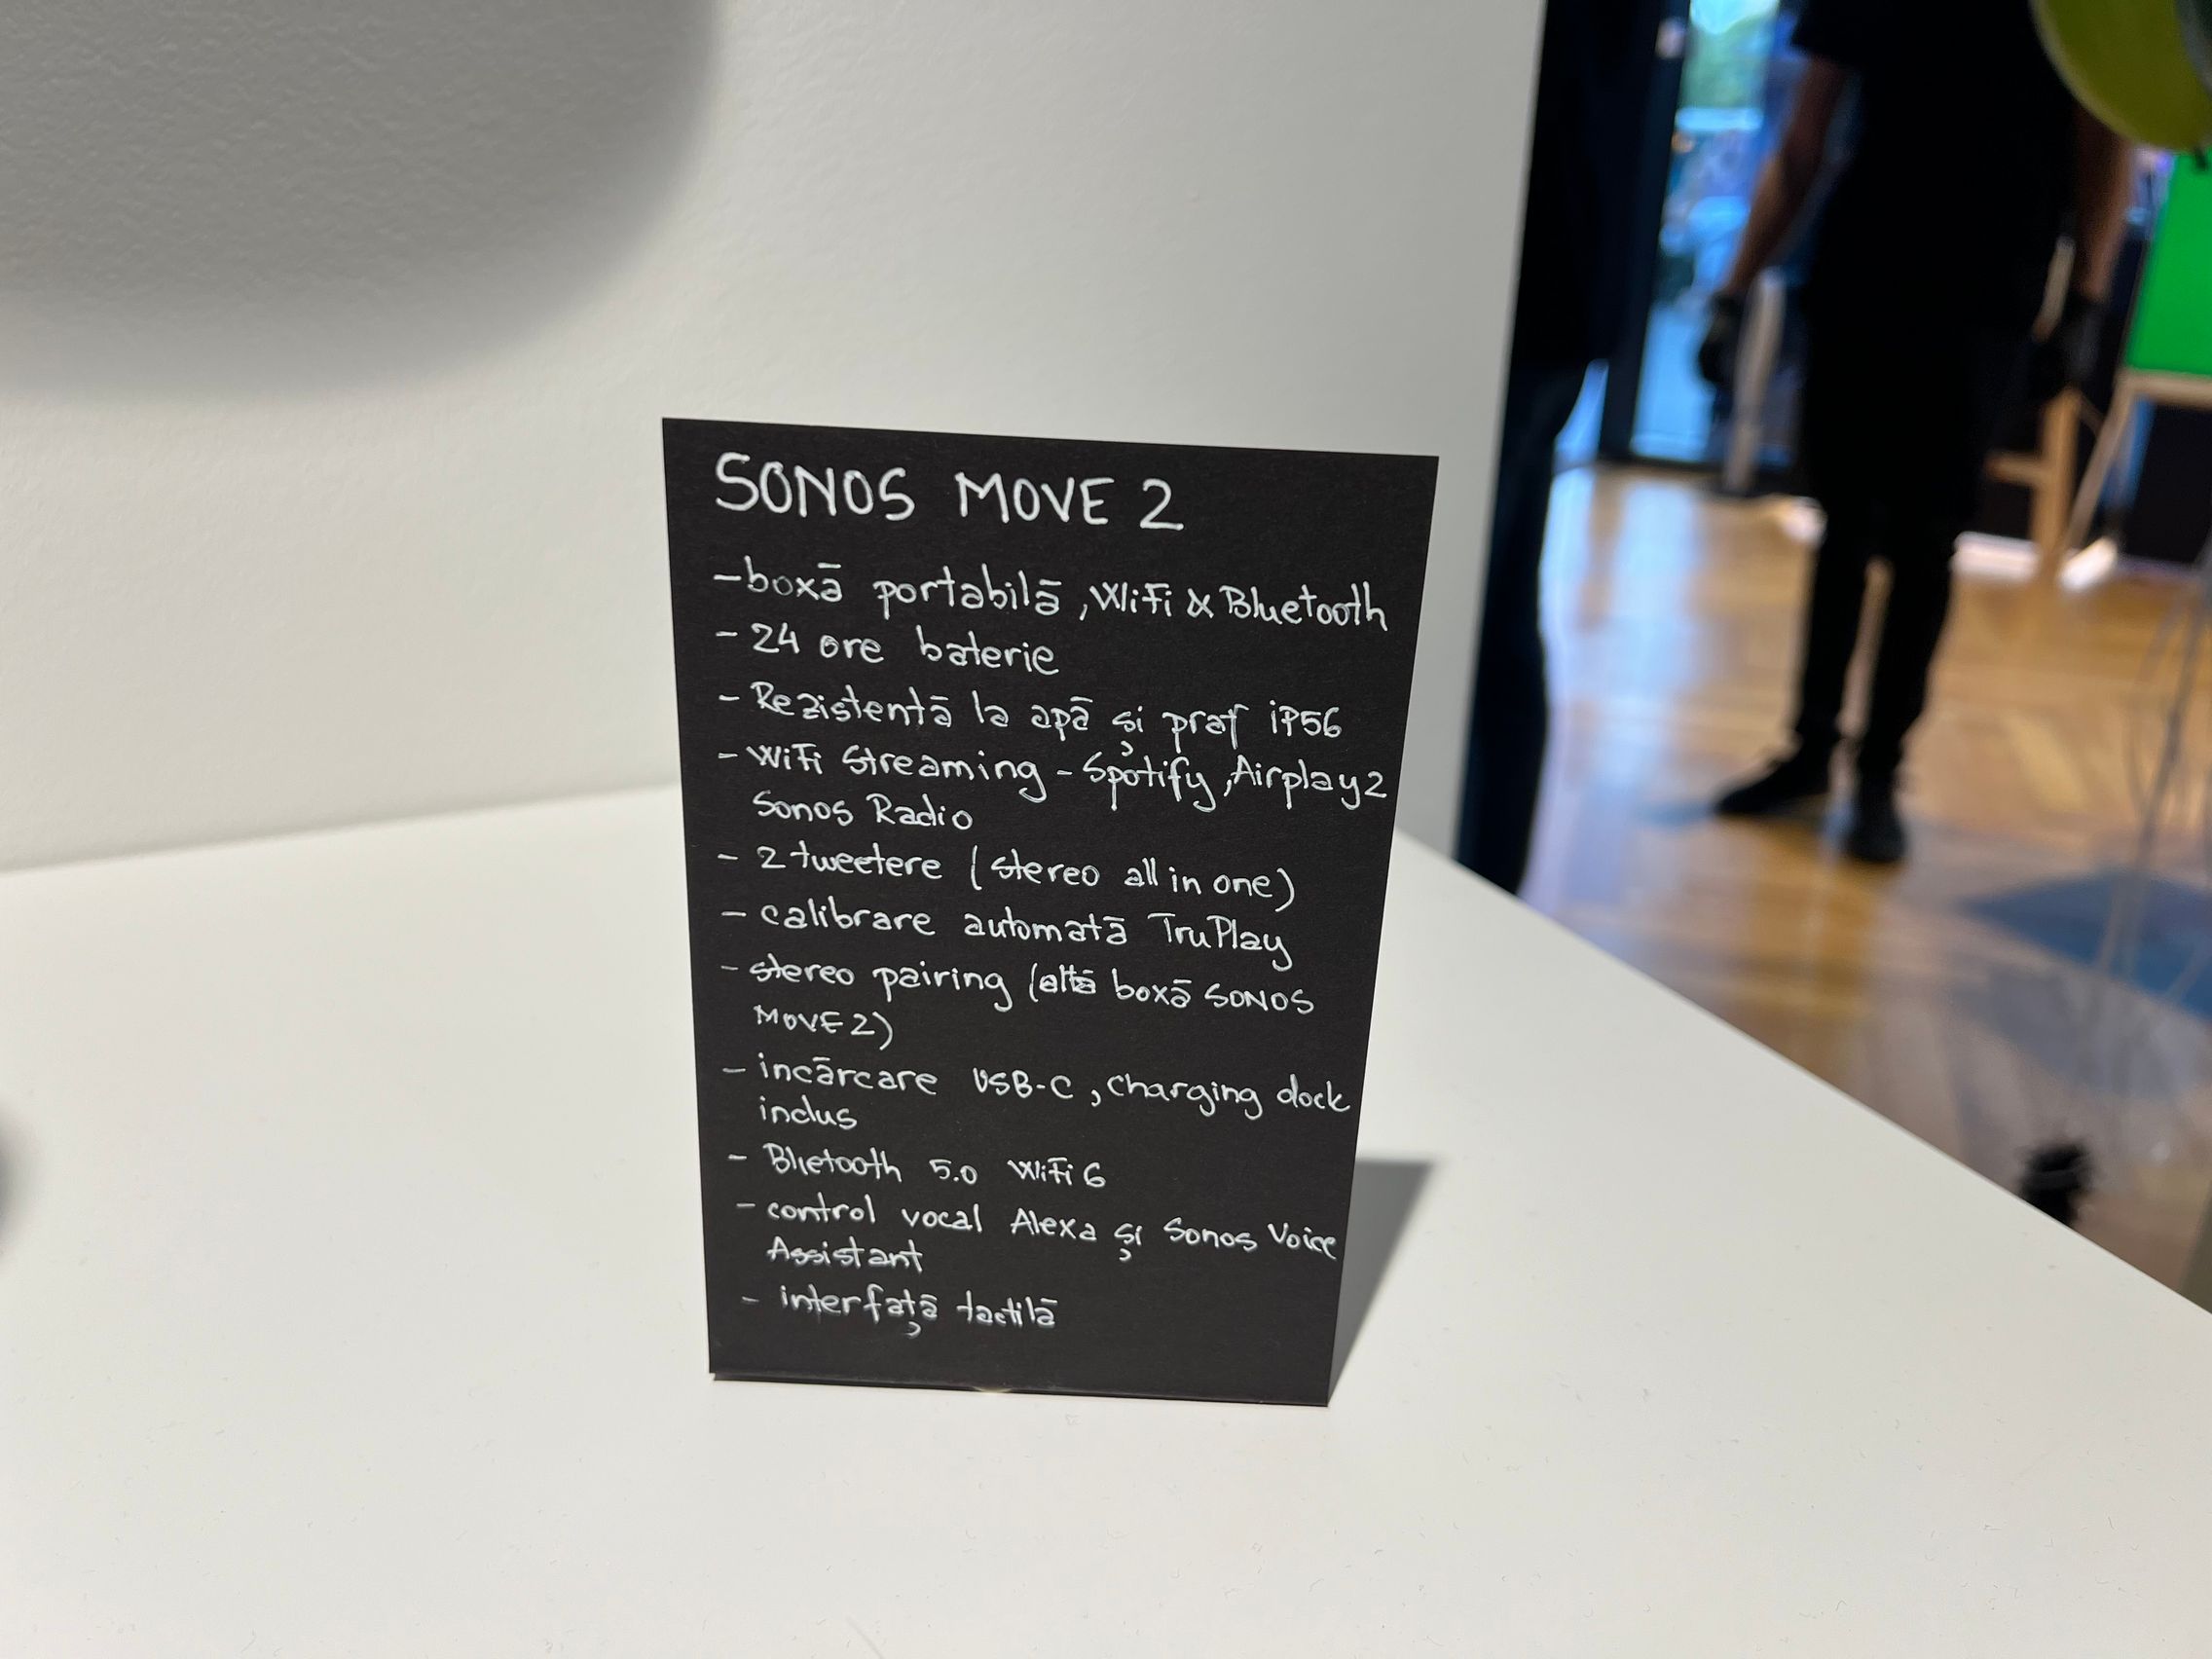 SONOS MOVE 2
- boxā portabilā, WiFi & Bluetooth
- 24 ore baterie
- Rezistentā la apā și praf iP56
- WiFi Streaming - Spotify, Airplay 2
Sonos Radio
- 2 tweetere (stereo all in one)
- calibrare automatā TruPlay
- stereo pairing (altā boxā SONOS
MOVE 2)
- incārcare USB-C, charging dock
inclus
- Bluetooth 5.0 WiFi 6
- control vocal Alexa și Sonos Voice
Assistant
- interfațā tactilā